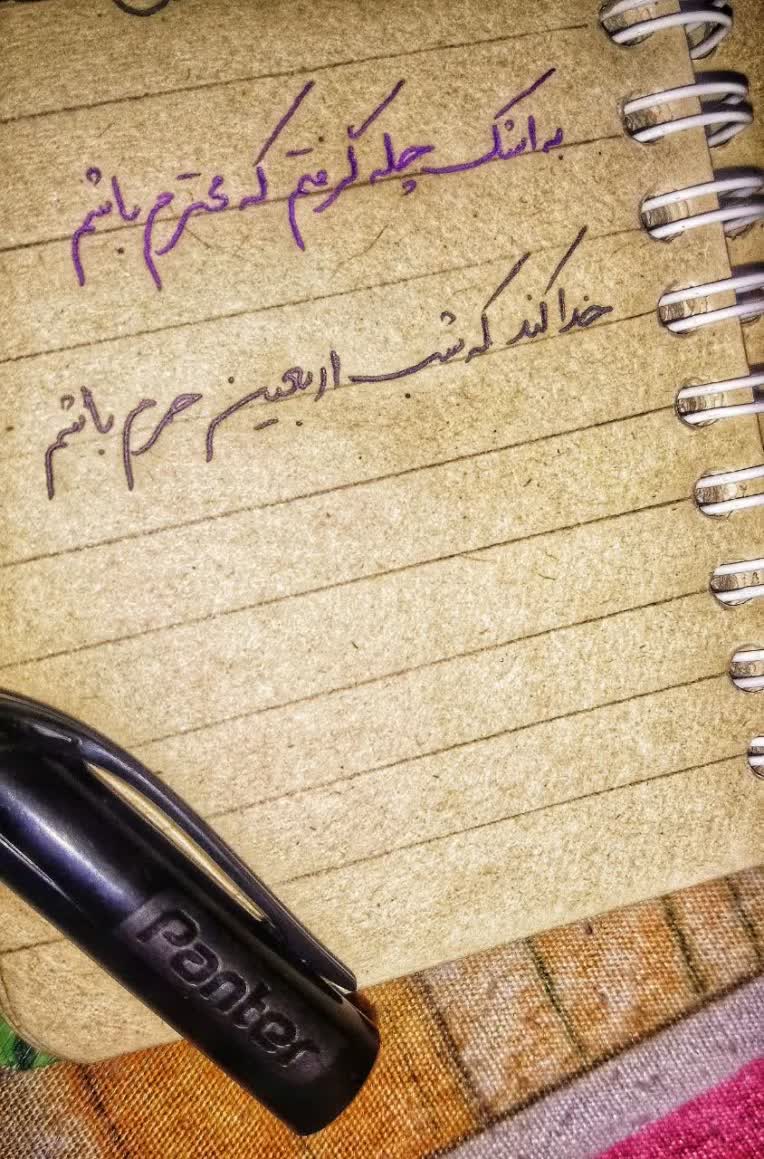 به اشک چله گرفتم که محترم باشم
خدا کند که شب اربعین حرم باشم
Panter